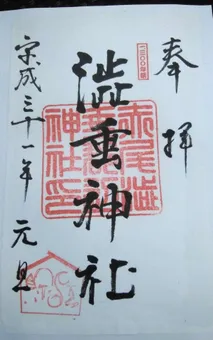 奉拝
赤尾渋
澁垂神社
神社印
平成三十一年 元旦